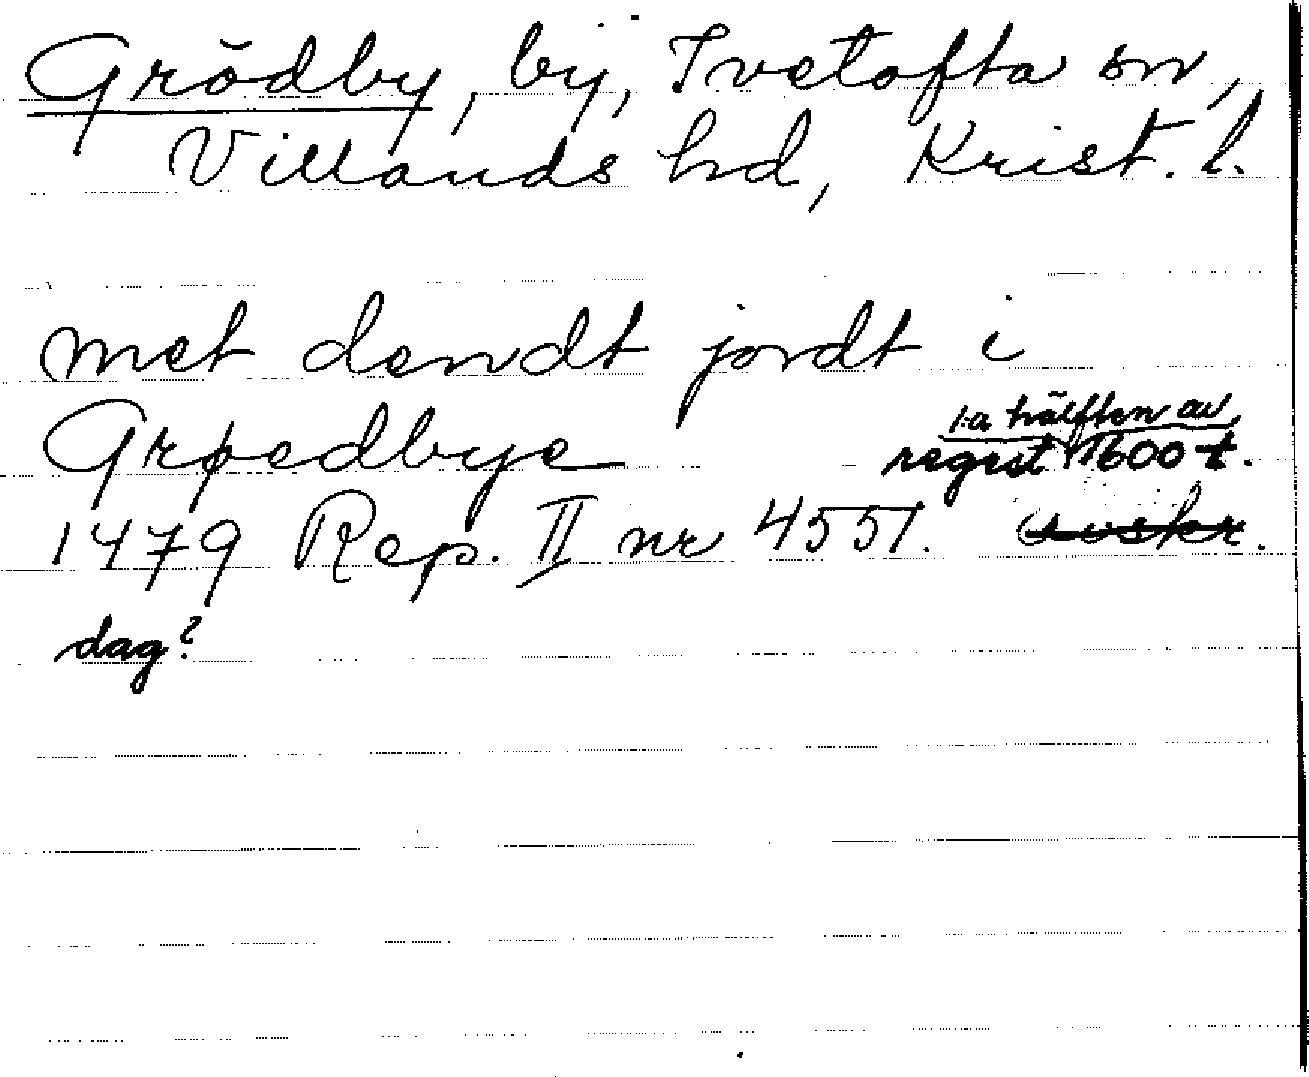 Grödby, by, Ivetofta sn,
Villands hd, Krist. l.
met dendt jordt i
Grøedbye
1:a hälften av
regest 1600-t.
1479 Rep. II nr 4551.
dag?